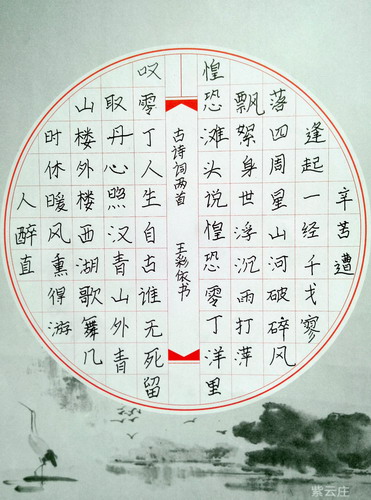 辛苦遭
逢起一经干戈寥
落四周星山河破碎风
飘絮身世浮沉雨打萍
惶恐滩头说惶恐零丁洋里
古诗词两首 王彩依书
叹零丁人生自古谁无死留
取丹心照汉青山外青
山楼外楼西湖歌舞几
时休暖风熏得游
人醉直
紫云庄